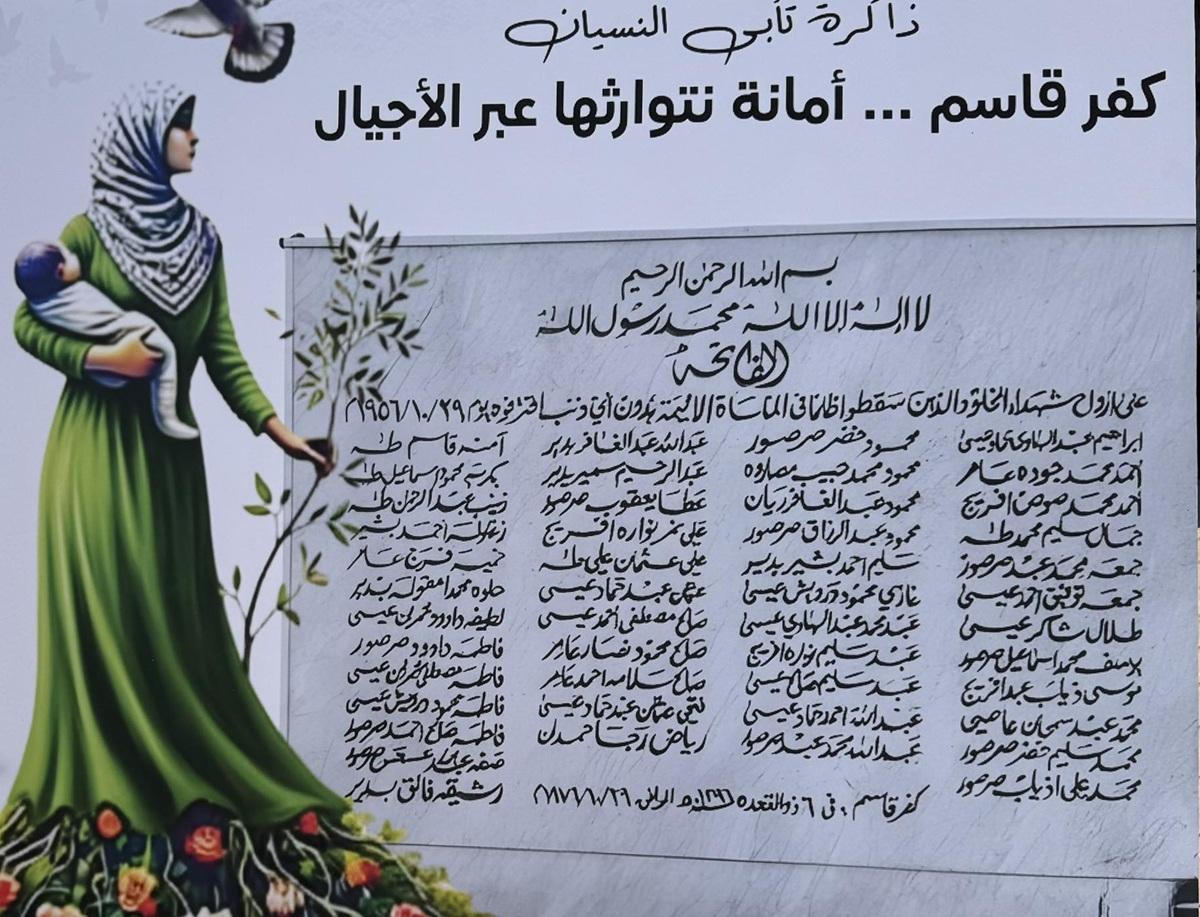 ذاكرة تأبى النسيان
كفر قاسم ... أمانة نتوارثها عبر الأجيال
بسم الله الرحمن الرحيم
لا اله الا الله محمد رسول الله
الفاتحه
على ارواح شهداء الخلود الذين سقطوا ظلما في المأساة الاليمة بدون اي ذنب اقترفوه يوم ٢٩/١٠/١٩٥٦م
ابراهيم عبد الهادي حماد عيسى
احمد محمد جوده عامر
احمد محمد صوص افريج
جمال سليم محمد طه
جمعه محمد عبد صرصور
جمعه توفيق احمد عيسى
طلال شاكر عيسى
يوسف محمد اسماعيل صرصور
موسى ذياب عبد افريج
محمد عبد سمحان عاصي
محمد سليم خضر صرصور
محمد علي اذياب صرصور
محمود خضر صرصور
محمود محمد حبيب مصاروه
محمود عبد الغافر ريان
محمود عبد الرزاق صرصور
سليم احمد بشير بدير
غازي محمود درويش عيسى
عبد محمد عبد الهادي عيسى
عبد سليم نواره افريج
عبد سليم صالح عيسى
عبد الله احمد حماد عيسى
عبد الله محمد عبد صرصور
عبد الله عبد الغافر بدير
عبد الرحيم سمير بدير
عطا يعقوب صرصور
علي نمر نواره افريج
علي عثمان علي طه
عثمان عبد حماد عيسى
صالح مصطفى احمد عيسى
صالح محمود نصار عامر
صالح سلامه احمد عامر
فتحي عثمان عبد حماد عيسى
رياض رجا حمدان
آمنه قاسم طه
بكريه محمود اسماعيل طه
زينب عبد الرحمن طه
زغلوله احمد بشير
خميسه فرج عامر
حلوه محمد بدير
لطيفه داوود عيسى
فاطمه داوود صرصور
فاطمه مصطفى عيسى
فاطمه محمود درويش عيسى
فاطمه صالح احمد صرصور
صفه عبد الله صرصور
رشيقه فائق بدير
كفر قاسم : في ٦ ذو القعده ١٣٩٦هـ الموافق ٢٩/١٠/١٩٧٦م